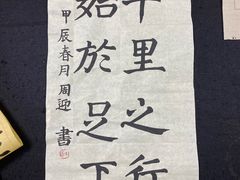 千里之行
始於足下
甲辰春月周迎書